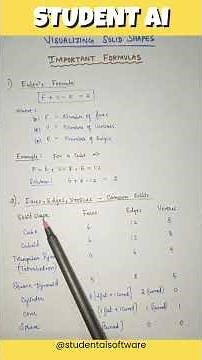 STUDENT AI
VISUALIZING SOLID SHAPES
IMPORTANT FORMULAS
1) Euler's Formula
F + V - E = 2
where :
(a) F = Number of faces
(b) V = Number of vertices
(c) E = Number of Edges
Example : For a cube
Solution : 6 + 8 - 12 = 2
2) Faces, Edges, Vertices - Common Solids
Solid Shape Faces Edges Vertices
Cube 6 12 8
Cuboid 6 12 8
Triangular Pyramid
(Tetrahedron)
Square Pyramid 5 8 5
Cylinder
Cone
Sphere
@studentaisoftware